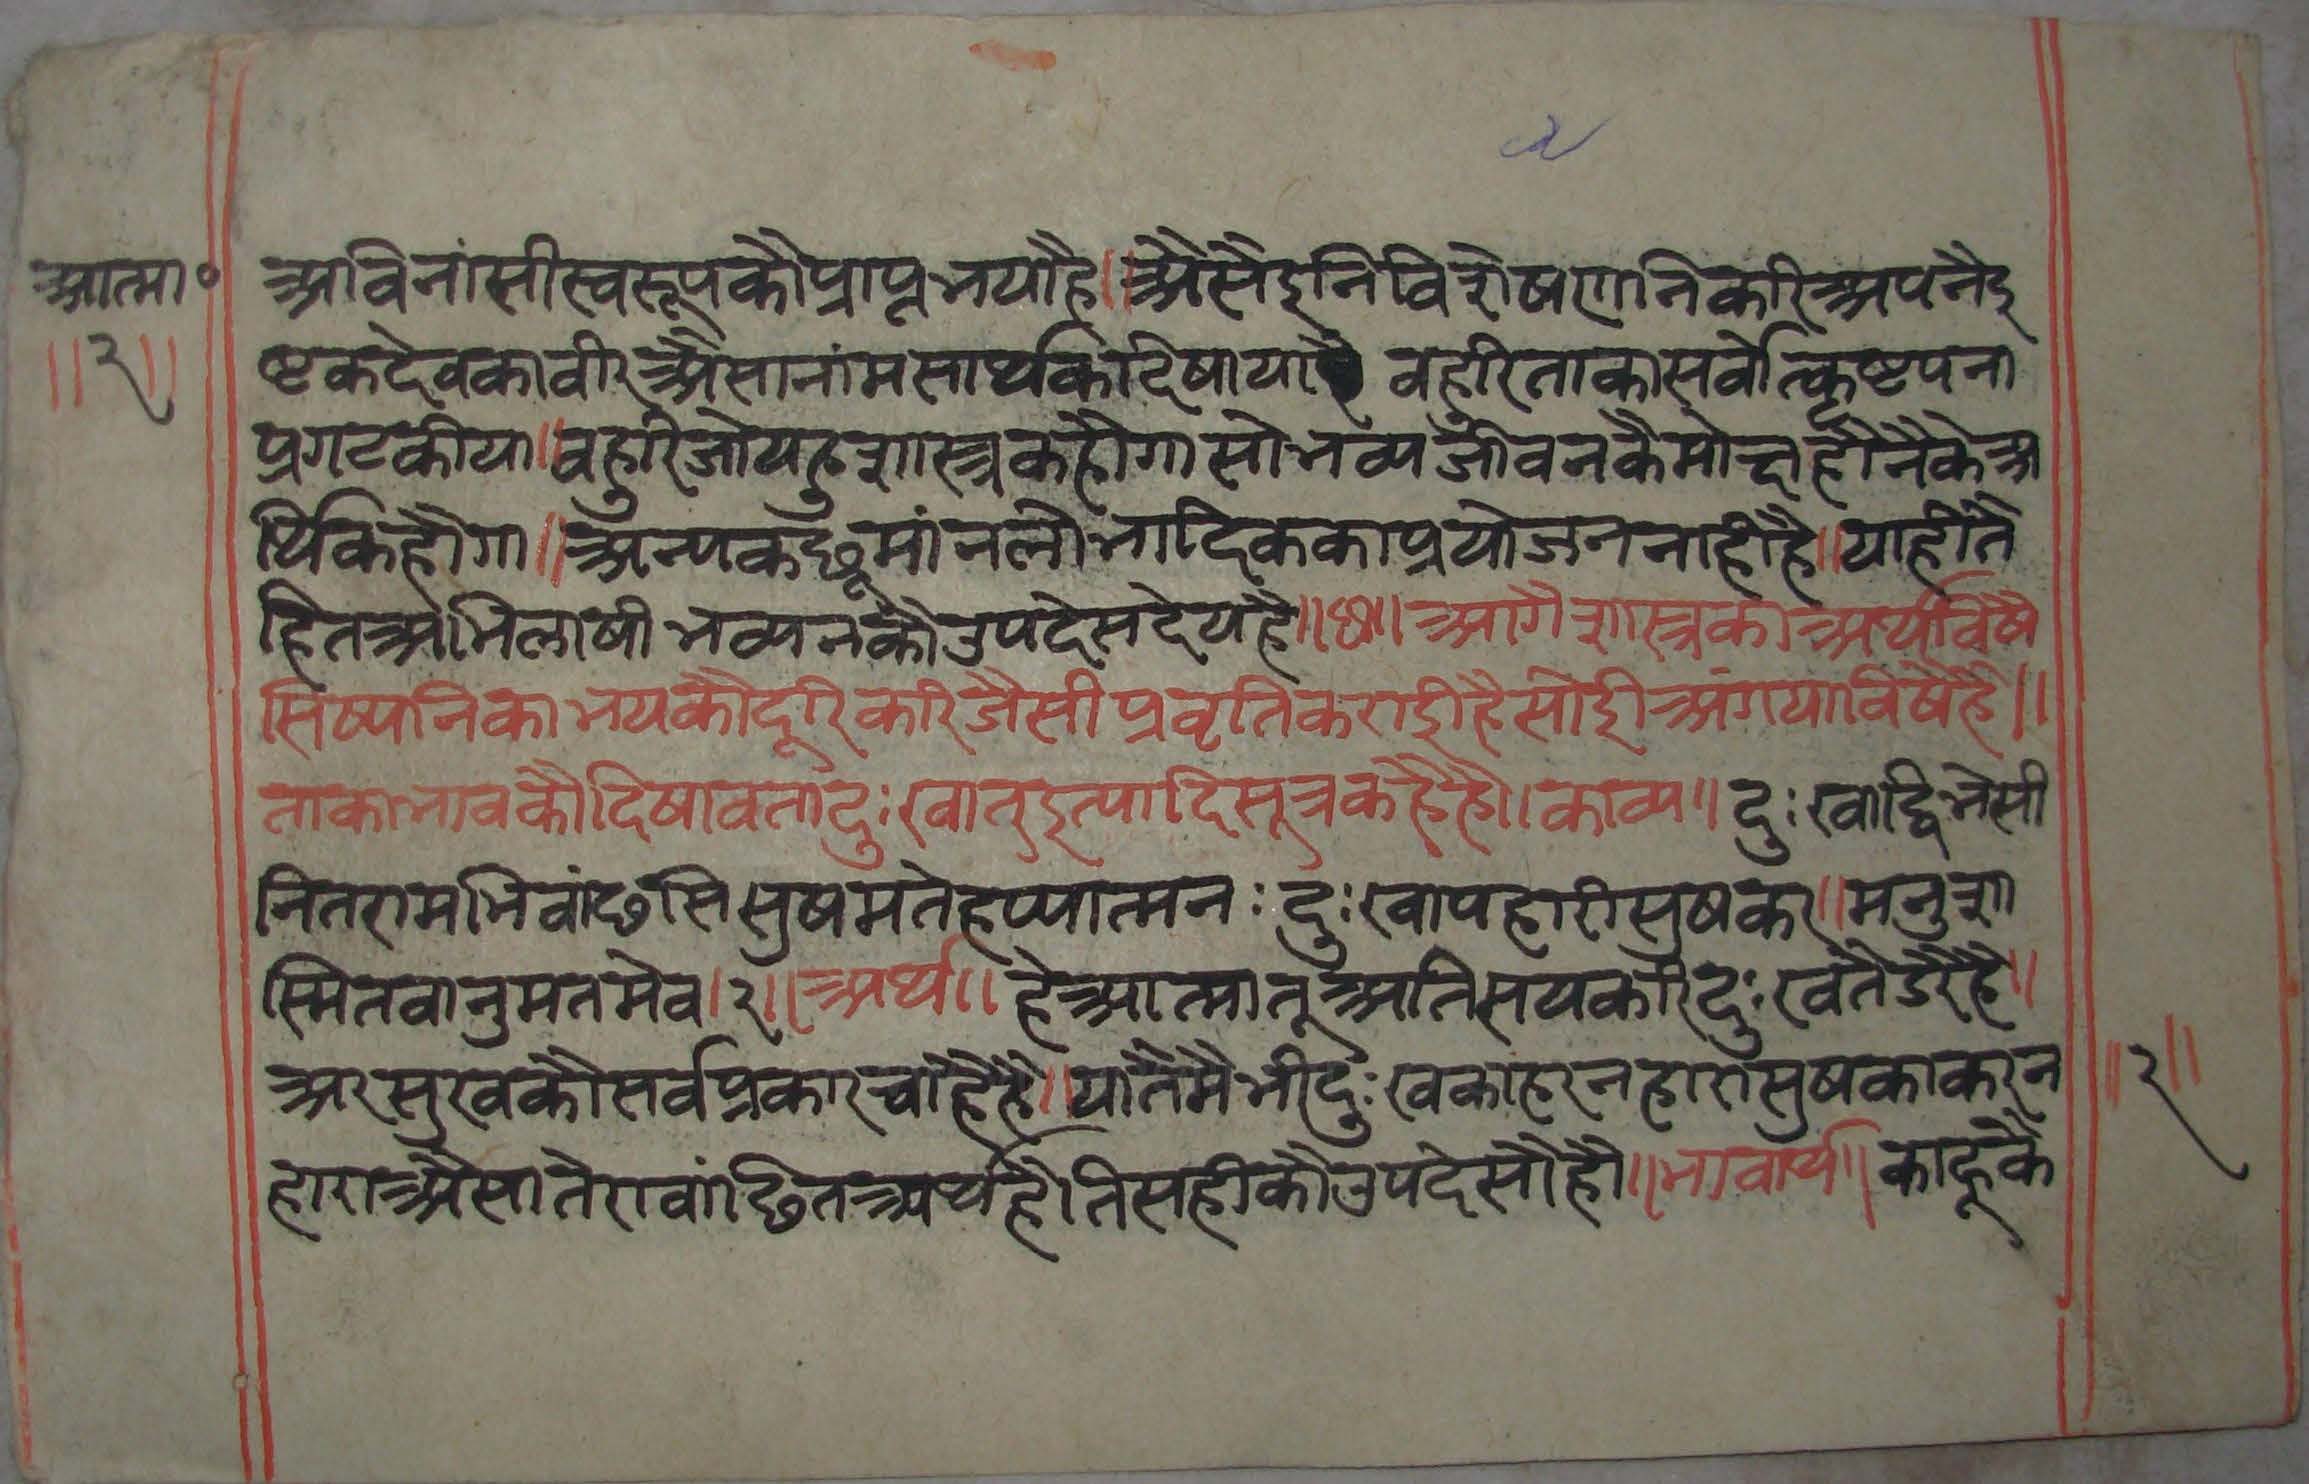 आत्मा॰
॥२॥
अविनांसीस्वरूपकौंप्राप्तभयाहै॥अैसैइनिविशेषणनिकरिअपनैइ
ष्टकदेवकावीरअैसानांमसार्थकदिषाया वहरिताकासर्वोत्कृष्टपना
प्रगटकीया॥वहुरिजोयहुशास्त्रकहौगासोभव्यजीवनकैमोक्षहौनैकेअ
र्थिकहौगा॥अन्यकछूमांनलोभादिककाप्रयोजननाहीहै॥याहीतै
हितअभिलाषीभव्यनकौउपदेसदेयहै॥छ॥आगैशास्त्रकाअर्थविषै
सिष्यनिकाभयकौदूरिकरिजैसीप्रवृतिकराईहैसोईअंगयाविषैहै॥
ताकाभावकौदिषावतांदुःखात्इत्यादिसूत्रकहैहै।काव्य॥दुःखाद्विभेसी
नितरामभिवांछसिसुषमतेहप्यात्मनःदुःखापहारीसुषकर॥मनुशा
स्मितवानुमतमेव।२॥अर्थ॥हेआत्मातूअतिसयकरिदुःखतैडरैहै॥
अरसुखकौसर्वप्रकारचाहैहै॥यातैमैभीदुःखकाहरनहारासुषकाकरन
हाराअैसातेरावांछितअर्थहैतिसहीकौउपदेसौहौ॥भावार्थ॥काहूकै
॥२॥